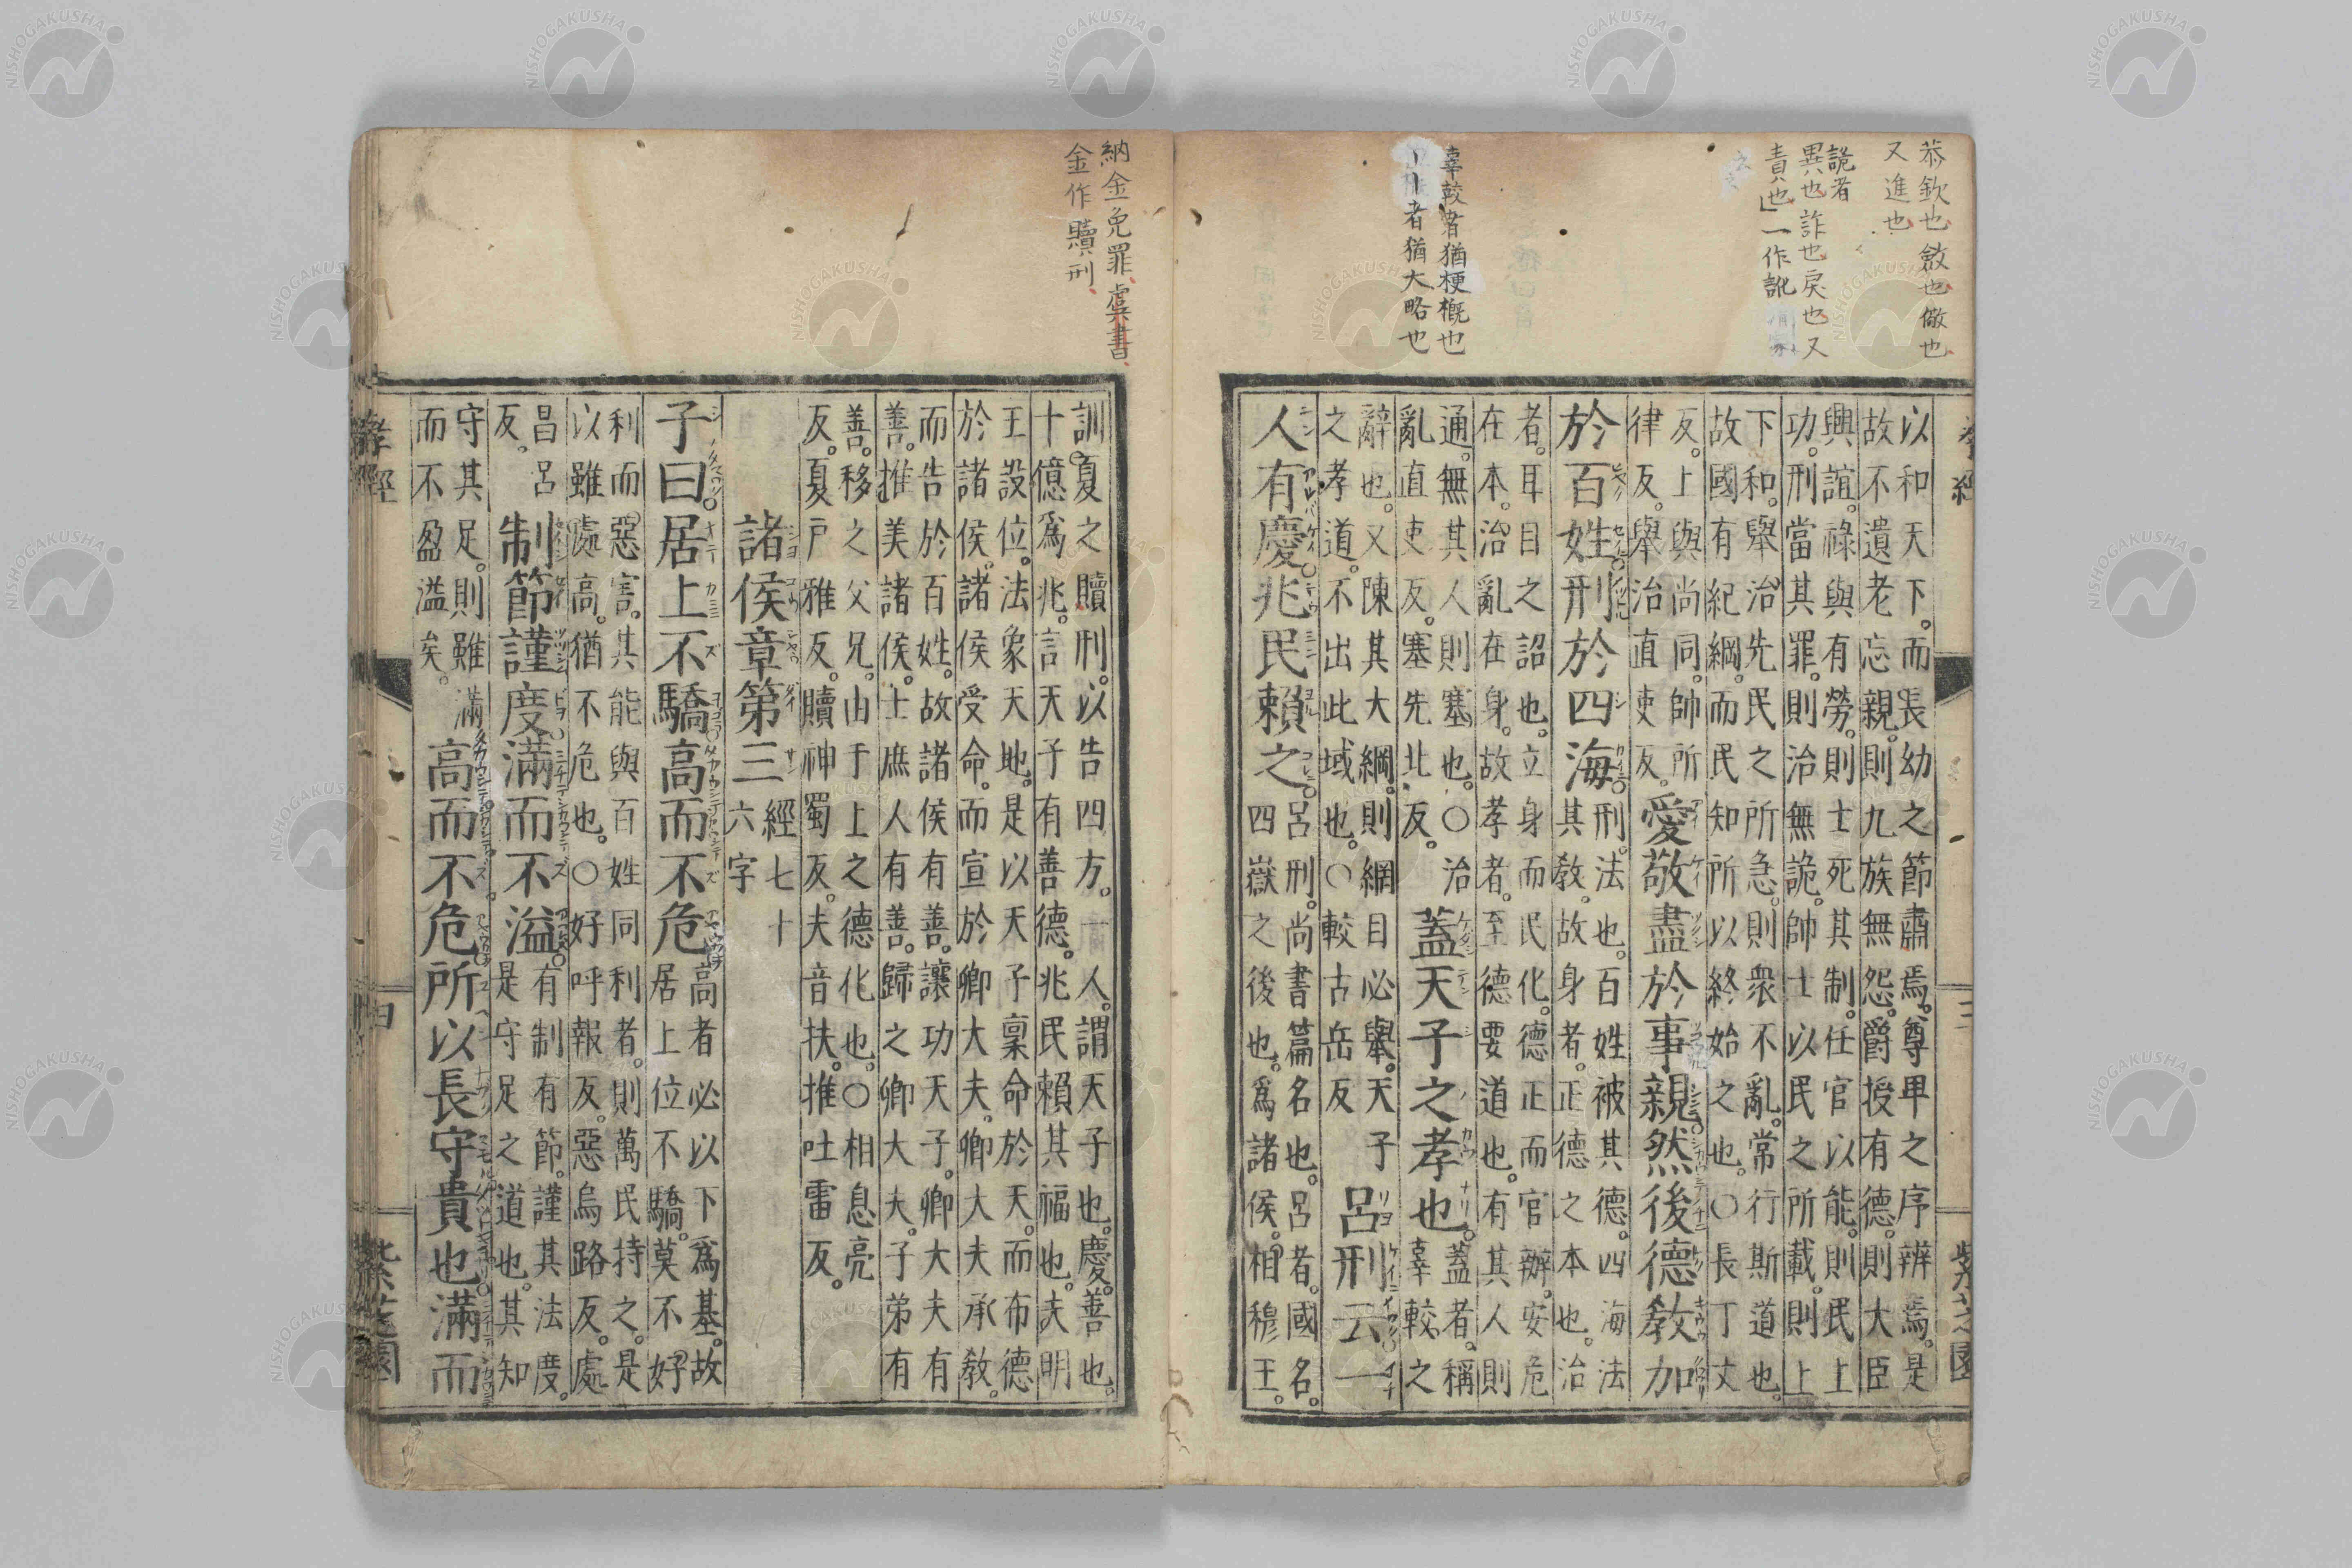 恭欽也敬也儆也
又進也
詭者
異也詐也戾也又
責也一作訛
辜較者猶梗概也
者猶大略也
以和天下。而長幼之節肅焉。尊卑之序辨焉。是
故不遺老忘親。則九族無怨。爵授有德。則大臣
興誼。祿與有勞。則士死其制。任官以能。則民上
功。刑當其罪。則治無詭。帥士以民之所載。則上
下和。舉治先民之所急。則衆不亂。常行斯道也。
故國有紀綱。而民知所以終始之也。○長丁丈
反。上與尚同。帥所
律反。舉治直吏反。
愛敬盡於事親然後德教加
於百姓。刑於四海。
刑。法也。百姓被其德。四海法
其教。故身者。正德之本也。治
者。耳目之詔也。立身而民化。德正而官辦。安危
在本。治亂在身。故孝者。至德要道也。有其人則
通。無其人則塞也。○治
亂直吏反。塞先北反。
蓋天子之孝也。
蓋者。稱
辜較。之
辭也。又陳其大綱。則網目必舉。天子
之孝道。不出此域也。○較古岳反
呂刑云一
人有慶。兆民賴之。
呂刑。尚書篇名也。呂者。國名。
四嶽之後也。爲諸侯。相穆王。
三
紫芝園
納金免罪虞書
金作贖刑
訓夏之贖刑。以告四方。一人。謂天子也。慶。善也。
十億爲兆。言天子有善德。兆民賴其福也。夫明
王設位。法象天地。是以天子稟命於天。而布德
於諸侯。諸侯受命。而宣於卿大夫。卿大夫承教。
而告於百姓。故諸侯有善。讓功天子。卿大夫有
善。推美諸侯。士庶人有善。歸之卿大夫。子弟有
善。移之父兄。由于上之德化也。○相息亮
反。夏戶雅反。贖神蜀反。夫音扶。推吐雷反。
諸侯章第三
經七十
六字
子曰。居上不驕高而不危
高者必以下爲基。故
居上位不驕。莫不好
利而惡害。其能與百姓同利者。則萬民持之。是
以雖處高。猶不危也。○好呼報反。惡烏路反。處
昌呂
反。
制節謹度滿而不溢。
有制有節。謹其法度。
是守足之道也。其知
守其足。則雖滿
而不盈溢矣。
高而不危所以長守貴也滿而
孝經
四
紫芝園